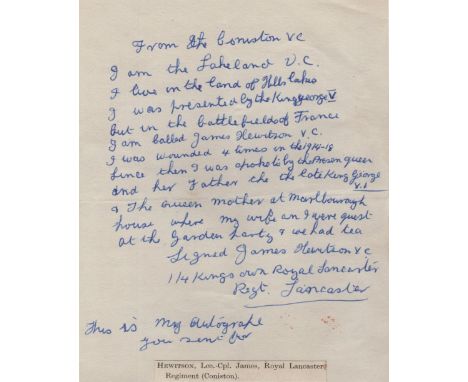 From the Coniston VC
I am the Lakeland V.C.
I live in the land of Hills lakes
I was presented by the King george V
But in the battlefields of France
I am called James Hewitson V.C.
I was wounded 4 times in the 1914-18
Since then I was spoke to by the Presen queen
and her Father the late King George
V.I
& The Queen mother at Marlbourough
house where my wife an I were guest
at the Garden party & we had tea
Signed James Hewitson VC
1/4 Kings own Royal Lancaster
Regt. Lancaster
This is my Autograpt
you sent for
HEWITSON, Lce.-Cpl. James, Royal Lancaster
Regiment (Coniston).